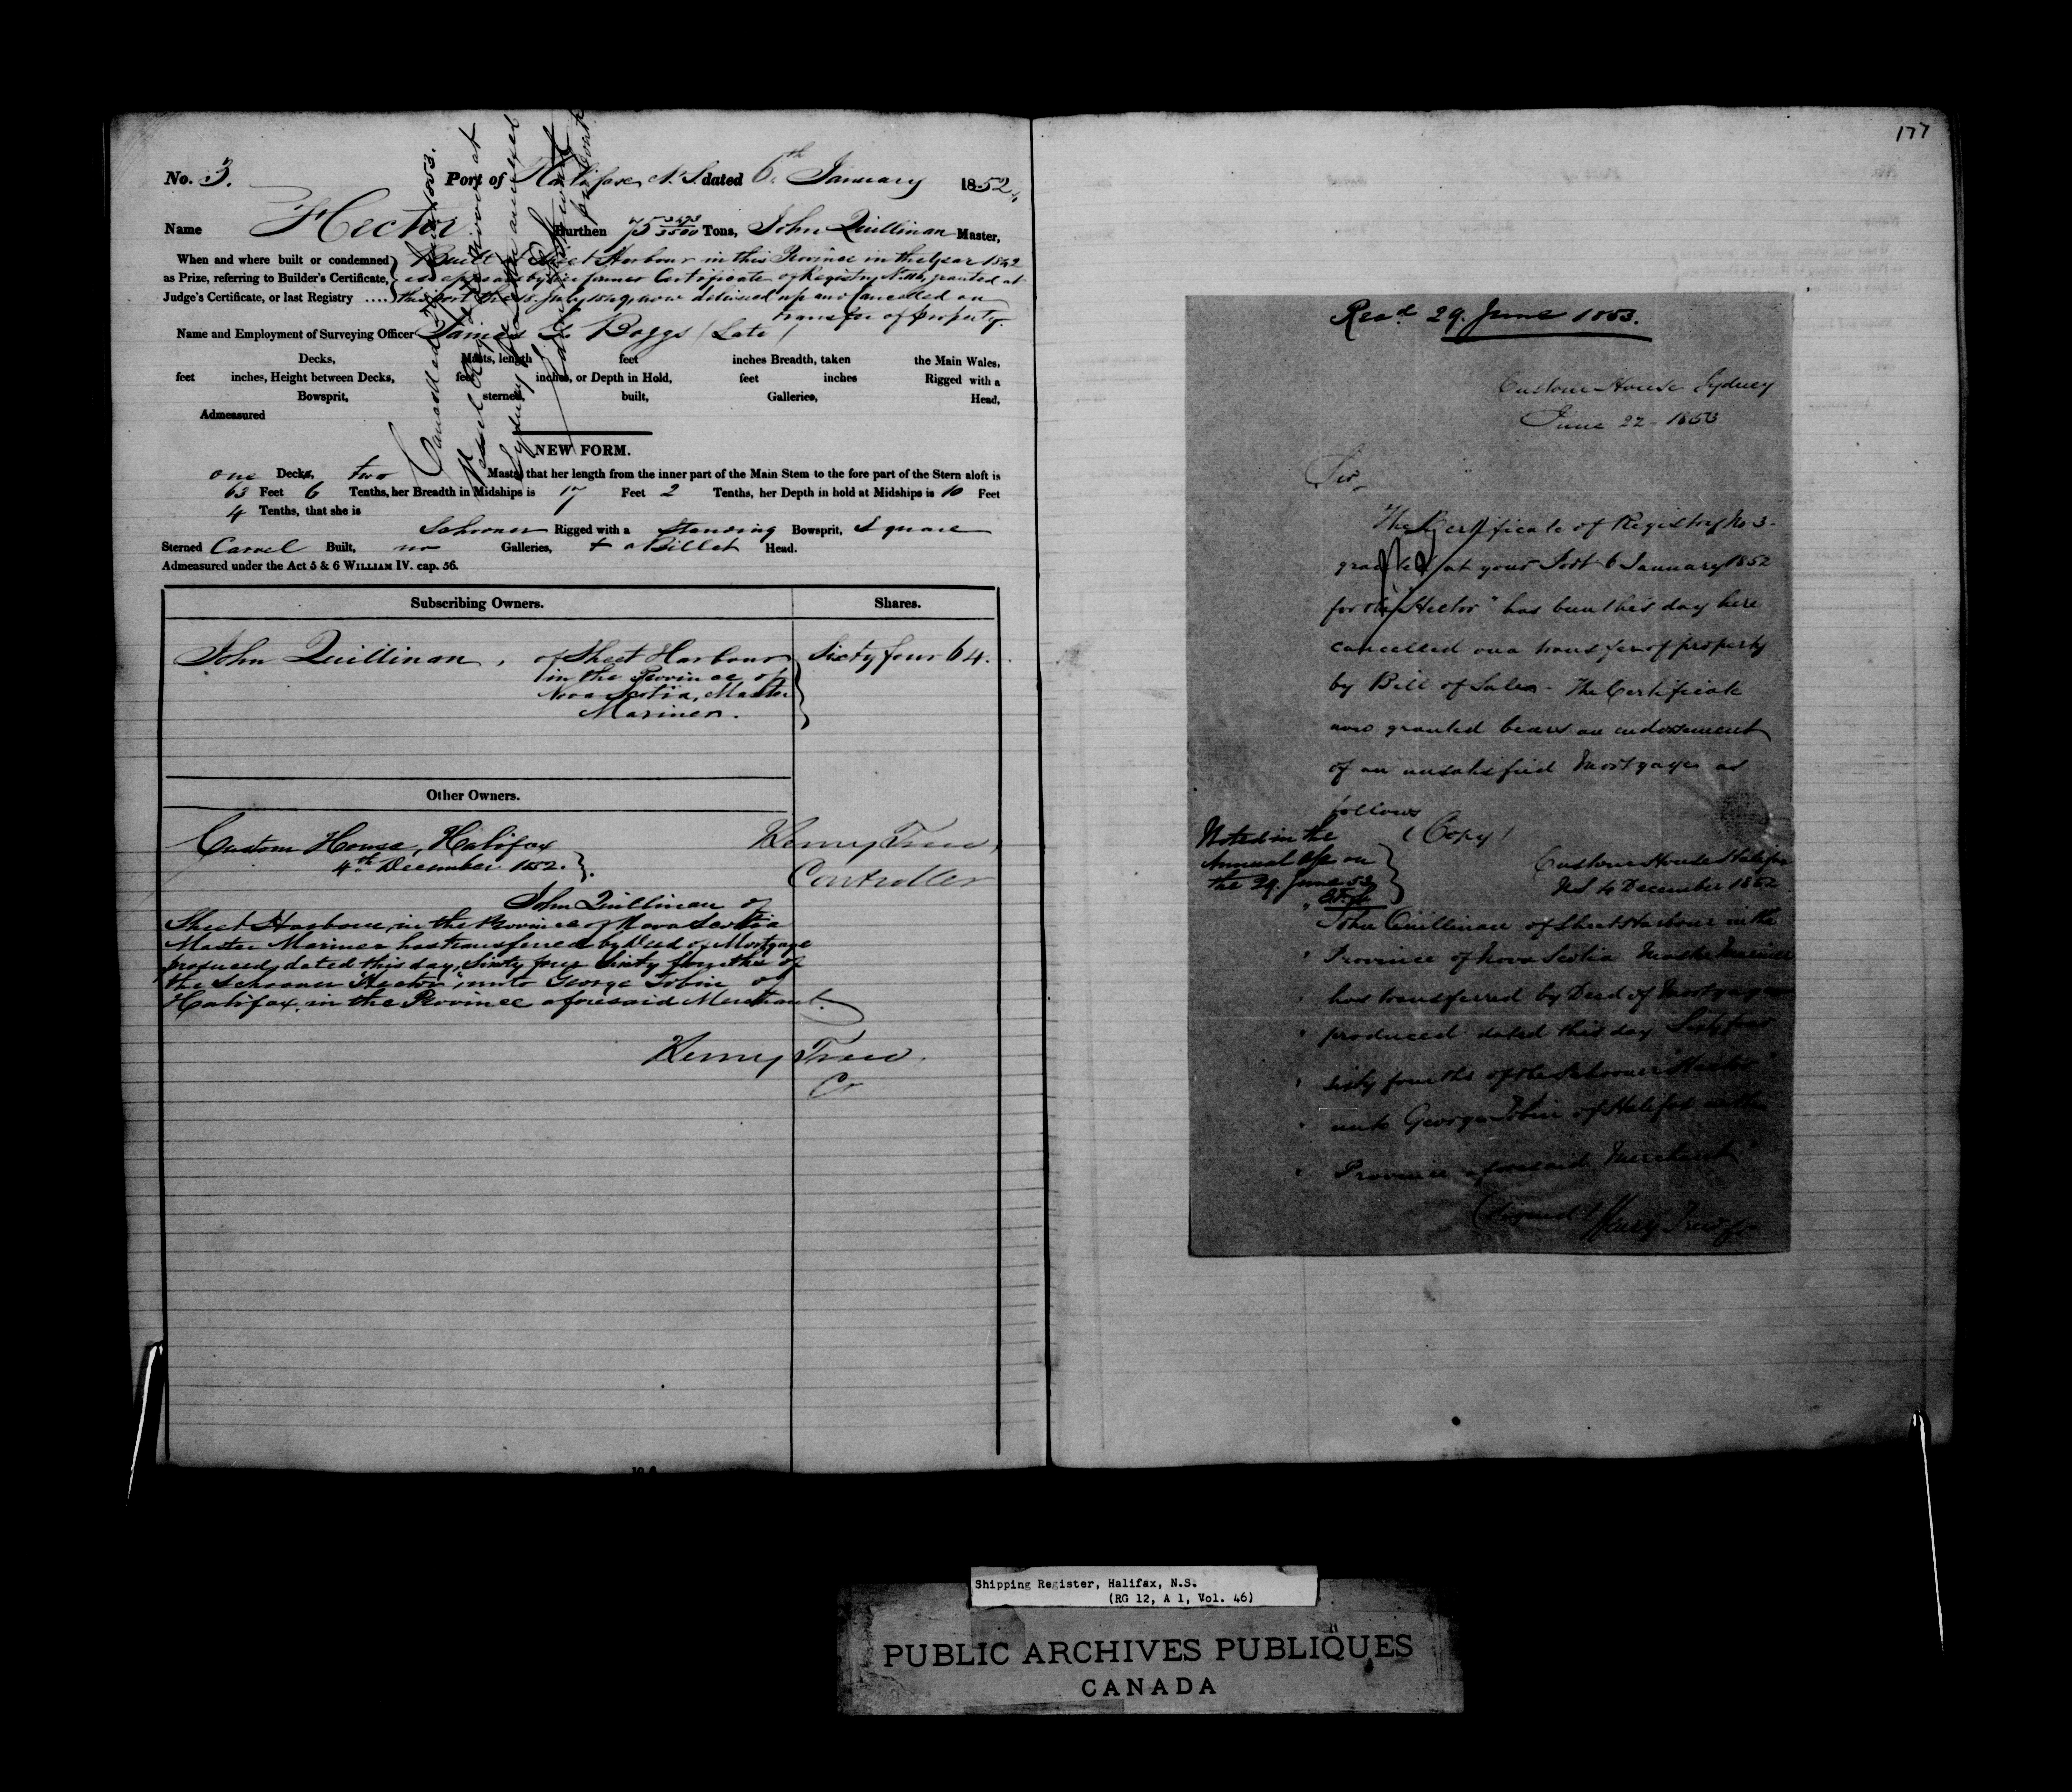 No. 3. Port of Halifax N.S. dated 6th January 1852
Name Hector Burthen 75 Tons, John Quillinan Master,
When and where built or condemned Built at Sheet Harbour in this Province in the Year 1842
as Prize, referring to Builder's Certificate, as appears by former Certificate of Registry granted at
Judge's Certificate, or last Registry .... this Port the 18 July 1849, now delivered up and Cancelled on
transfer of property.
Name and Employment of Surveying Officer James Boggs (Late)
Decks, Masts, length feet inches Breadth, taken the Main Wales,
feet inches, Height between Decks, feet inches, or Depth in Hold, feet inches Rigged with a
Bowsprit, sterned, built, Galleries, Head,
Admeasured
NEW FORM.
one Decks, two Masts, that her length from the inner part of the Main Stem to the fore part of the Stern aloft is
63 Feet 6 Tenths, her Breadth in Midships is 17 Feet 2 Tenths, her Depth in hold at Midships is 10 Feet
4 Tenths, that she is
Schooner Rigged with a standing Bowsprit, Square
Sterned Carvel Built, no Galleries, + a Billet Head.
Admeasured under the Act 5 & 6 WILLIAM IV. cap. 56.
Subscribing Owners. Shares.
John Quillinan, of Sheet Harbour Sixty four 64.
in the Province of
Nova Scotia, Master
Mariner.
Other Owners.
Custom House, Halifax
4th December 1852.
Henry Trew,
Controller
John Quillinan of
Sheet Harbour, in the Province of Nova Scotia
Master Mariner has transferred by Deed of Mortgage
produced, dated this day, Sixty four Sixty fourths of
the Schooner "Hector," unto George Tobin of
Halifax, in the Province aforesaid Merchant.
Henry Trew.
Cr
177
Recd 29. June 1853.
Custom House Sydney
June 22 1853
Sir,
The Certificate of Registry No 3
granted at your Port 6 January 1852
for the "Hector" has been this day here
cancelled on a transfer of property
by Bill of Sale - The Certificate
now granted bears an endorsement
of an unsatisfied Mortgage as
follows
(Copy)
Noted in the
Annual a/c on
the 29. June 53
Custom House Halifax
N.S. 4 December 1852
" John Quillinan of Sheet Harbour in the
" Province of Nova Scotia Master Mariner
" has transferred by Deed of Mortgage
" produced dated this day Sixty four
" sixty fourths of the Schooner "Hector"
" unto George Tobin of Halifax in the
" Province aforesaid Merchant"
(Signed) Henry Trew
Shipping Register, Halifax, N.S.
(RG 12, A 1, Vol. 46)
PUBLIC ARCHIVES PUBLIQUES
CANADA